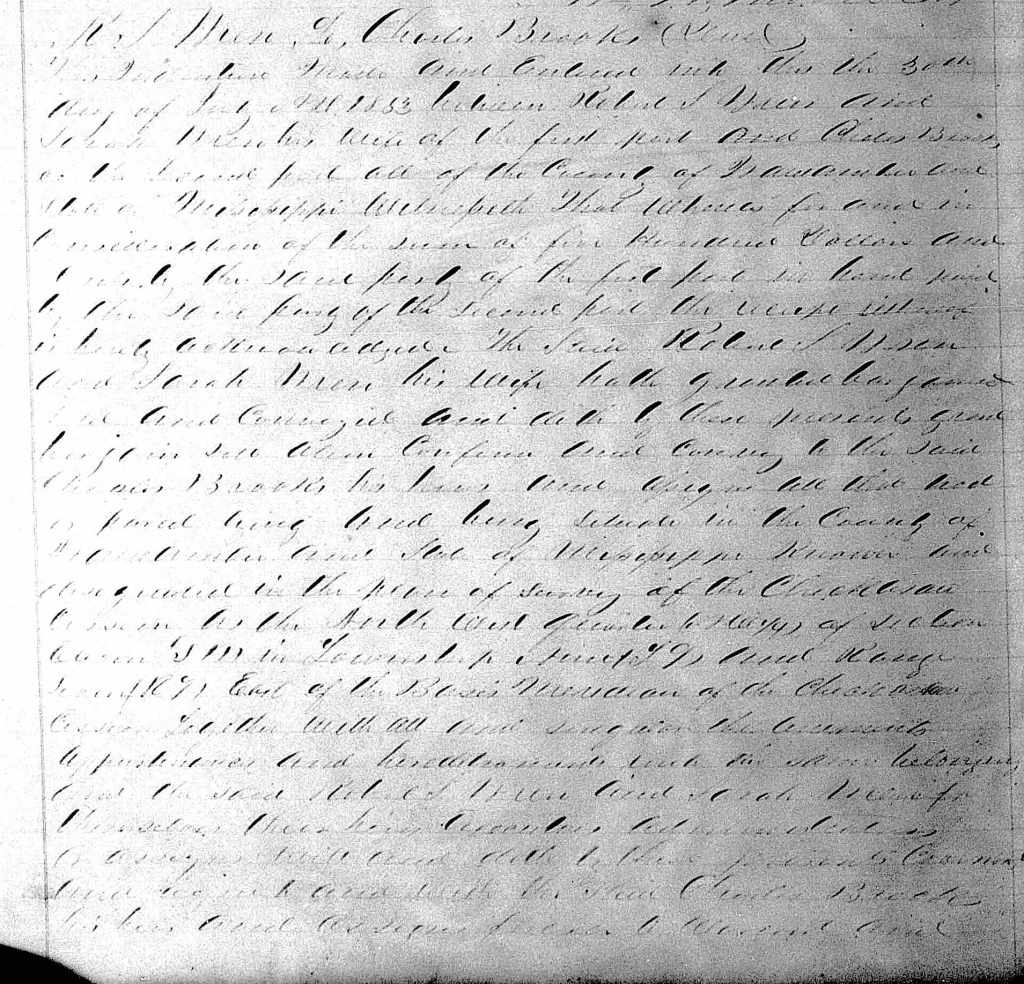 R S Wren To Charles Brooks (Deed)
This Indenture Made and Entered into this the 30th
day of July AD 1853 between Robert S Wren and
Sarah Wren his wife of the first part and Charles Brooks
of the Second part all of the County of Itawamba and
State of Mississippi Witnesseth That Whereas for and in
Consideration of the sum of five Hundred Dollars and
the said party of the first part in hand paid
by the said party of the second part the receipt whereof
is hereby acknowledged The Said Robert S Wren
and Sarah Wren his wife hath granted bargained
and Conveyed and doth by these presents grant
bargain sell alien Confirm and convey to the Said
Charles Brooks his heirs and assigns all that
or parcel lying and being situate in the County of
Itawamba and State of Mississippi Known and
designated in the plan of survey of the Chickasaw
Cession as the North West quarter of section
in Township Nine (T 9) and Range
Seven (R 7) East of the Basis Meridian of the Chickasaw
Cession Together with all and singular the
appurtenances and hereditaments unto the same belonging
And the said Robert S Wren and Sarah Wren for
themselves their heirs Executors administrators
or assigns and doth by these presents Covenant
and agree to and with the said Charles Brooks
his heirs and assigns forever to Warrant and